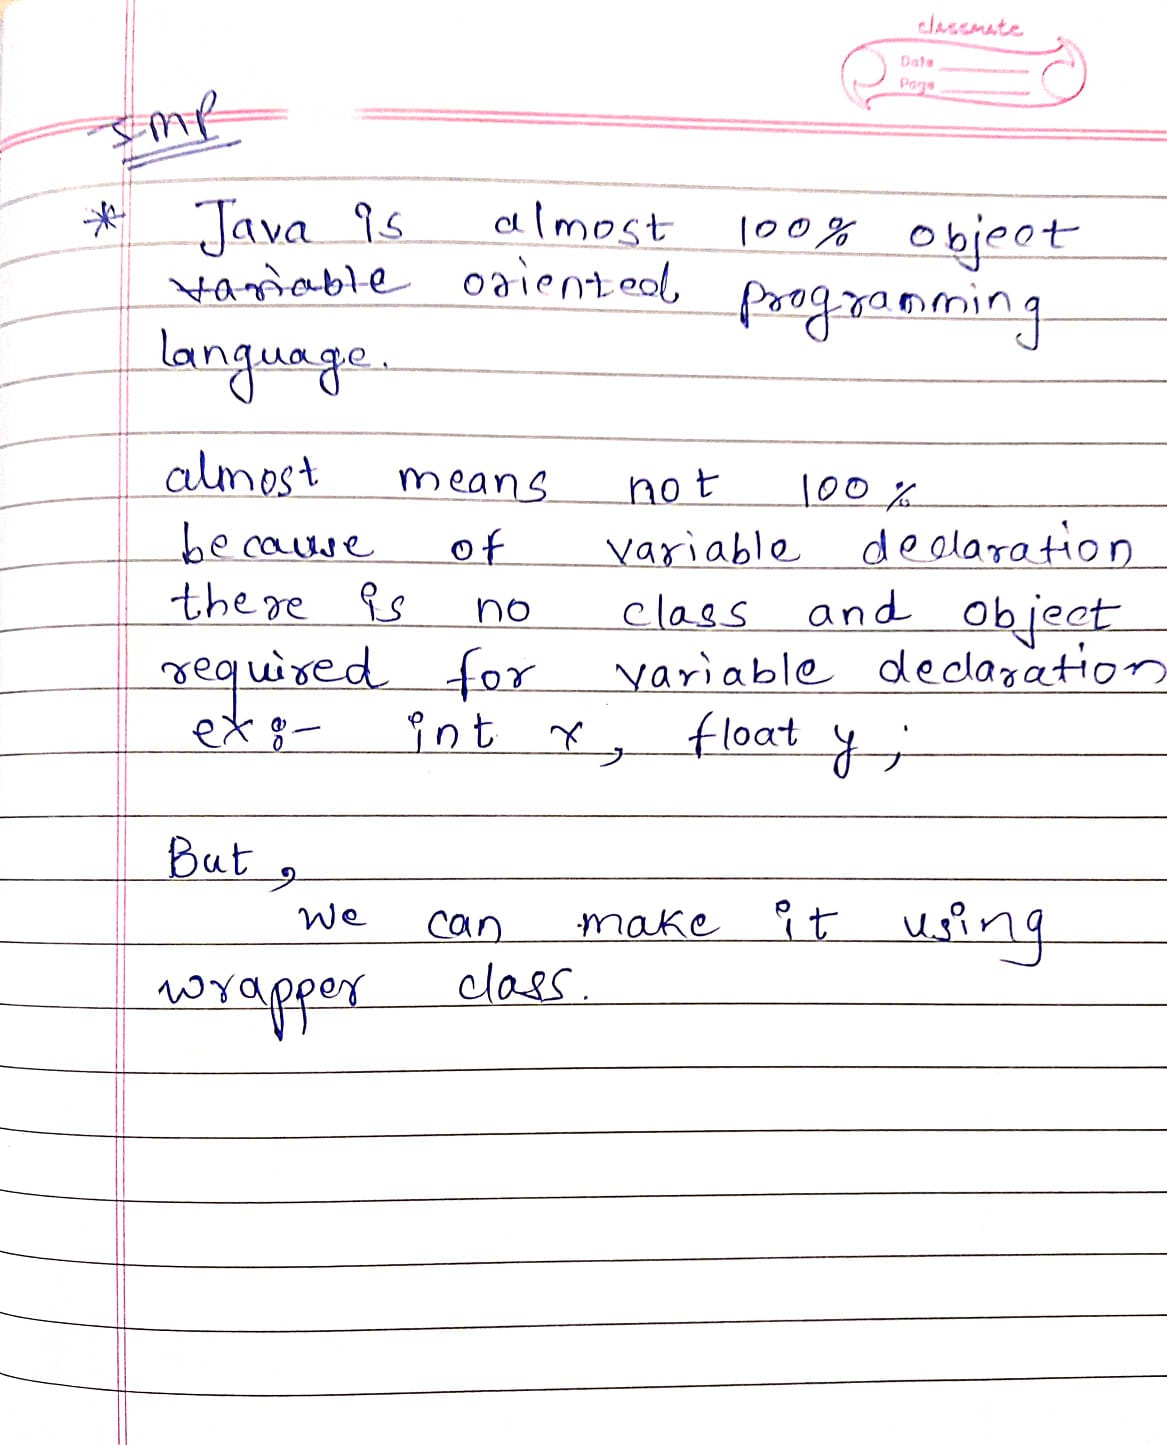 classmate
Date
Page
IMP
* Java is almost 100% object
variable oriented programming
language.
almost means not 100%
because of variable declaration
there is no class and object
required for variable declaration
ex:- int x, float y;
But,
we can make it using
wrapper class.